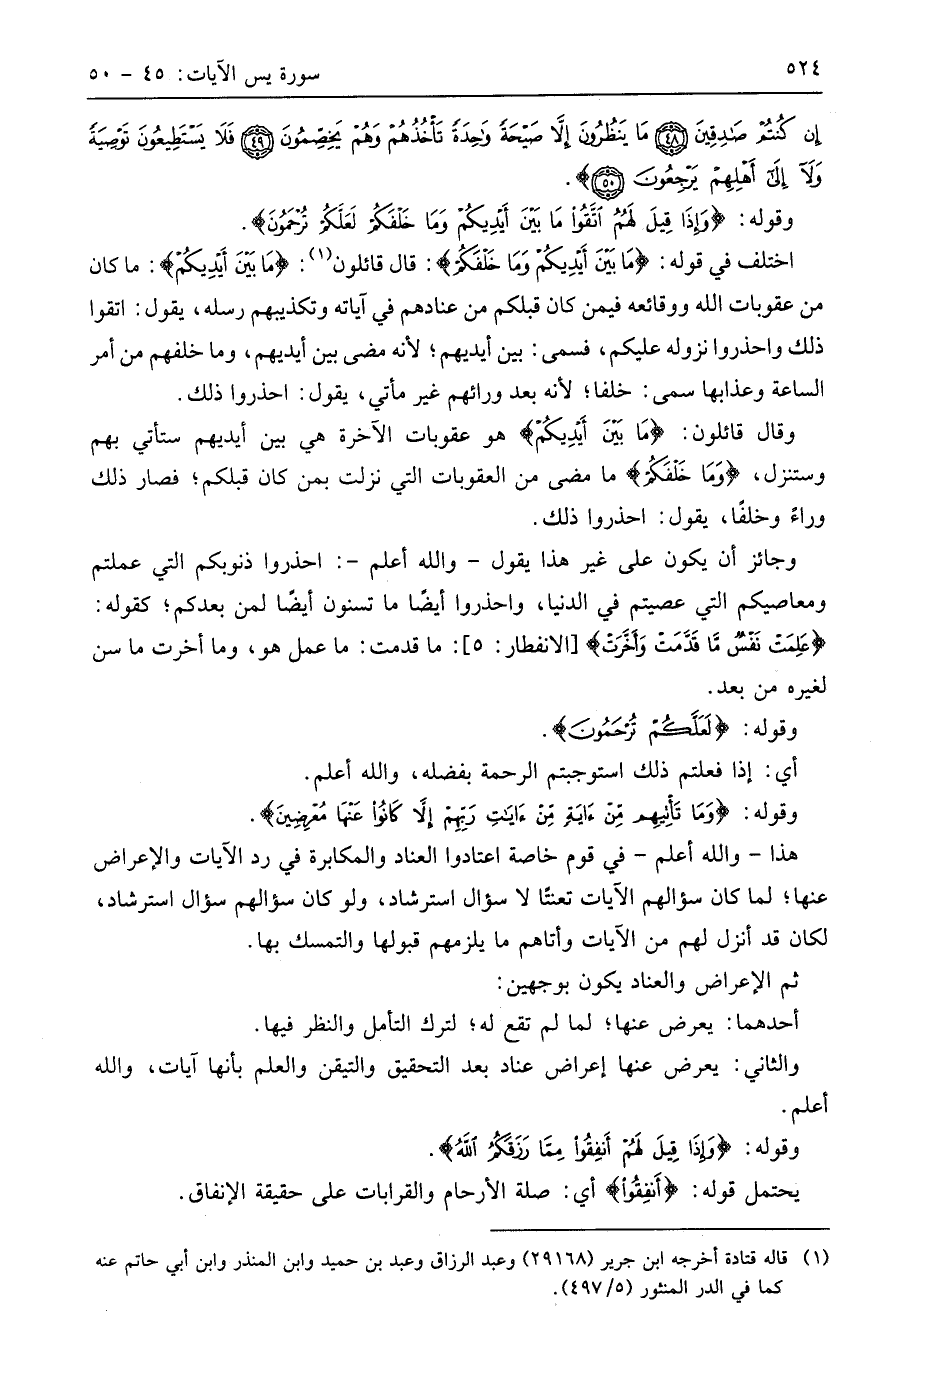 ٥٢٤
سورة يس الآيات: ٤٥ - ٥٠
إِن كُنتُمْ صَٰدِقِينَ ﴿٤٨﴾ مَا يَنظُرُونَ إِلَّا صَيْحَةً وَٰحِدَةً تَأْخُذُهُمْ وَهُمْ يَخِصِّمُونَ ﴿٤٩﴾ فَلَا يَسْتَطِيعُونَ تَوْصِيَةً
وَلَآ إِلَىٰٓ أَهْلِهِمْ يَرْجِعُونَ ﴿٥٠﴾﴾.
وقوله: ﴿وَإِذَا قِيلَ لَهُمُ ٱتَّقُوا۟ مَا بَيْنَ أَيْدِيكُمْ وَمَا خَلْفَكُمْ لَعَلَّكُمْ تُرْحَمُونَ﴾.
اختلف في قوله: ﴿مَا بَيْنَ أَيْدِيكُمْ وَمَا خَلْفَكُمْ﴾: قال قائلون(١): ﴿مَا بَيْنَ أَيْدِيكُمْ﴾: ما كان
من عقوبات الله ووقائعه فيمن كان قبلكم من عنادهم في آياته وتكذيبهم رسله، يقول: اتقوا
ذلك واحذروا نزوله عليكم، فسمى: بين أيديهم؛ لأنه مضى بين أيديهم، وما خلفهم من أمر
الساعة وعذابها سمى: خلفا؛ لأنه بعد ورائهم غير مأتي، يقول: احذروا ذلك.
وقال قائلون: ﴿مَا بَيْنَ أَيْدِيكُمْ﴾ هو عقوبات الآخرة هي بين أيديهم ستأتي بهم
وستنزل، ﴿وَمَا خَلْفَكُمْ﴾ ما مضى من العقوبات التي نزلت بمن كان قبلكم؛ فصار ذلك
وراءً وخلفًا، يقول: احذروا ذلك.
وجائز أن يكون على غير هذا يقول - والله أعلم -: احذروا ذنوبكم التي عملتم
ومعاصيكم التي عصيتم في الدنيا، واحذروا أيضًا ما تسنون أيضًا لمن بعدكم؛ كقوله:
﴿عَلِمَتْ نَفْسٌ مَّا قَدَّمَتْ وَأَخَّرَتْ﴾ [الانفطار: ٥]: ما قدمت: ما عمل هو، وما أخرت ما سن
لغيره من بعد.
وقوله: ﴿لَعَلَّكُمْ تُرْحَمُونَ﴾.
أي: إذا فعلتم ذلك استوجبتم الرحمة بفضله، والله أعلم.
وقوله: ﴿وَمَا تَأْتِيهِم مِّنْ ءَايَةٍ مِّنْ ءَايَٰتِ رَبِّهِمْ إِلَّا كَانُوا۟ عَنْهَا مُعْرِضِينَ﴾.
هذا - والله أعلم - في قوم خاصة اعتادوا العناد والمكابرة في رد الآيات والإعراض
عنها؛ لما كان سؤالهم الآيات تعنتًا لا سؤال استرشاد، ولو كان سؤالهم سؤال استرشاد،
لكان قد أنزل لهم من الآيات وأتاهم ما يلزمهم قبولها والتمسك بها.
ثم الإعراض والعناد يكون بوجهين:
أحدهما: يعرض عنها؛ لما لم تقع له؛ لترك التأمل والنظر فيها.
والثاني: يعرض عنها إعراض عناد بعد التحقيق والتيقن والعلم بأنها آيات، والله
أعلم.
وقوله: ﴿وَإِذَا قِيلَ لَهُمْ أَنفِقُوا۟ مِمَّا رَزَقَكُمُ ٱللَّهُ﴾.
يحتمل قوله: ﴿أَنفِقُوا۟﴾ أي: صلة الأرحام والقرابات على حقيقة الإنفاق.
(١) قاله قتادة أخرجه ابن جرير (٢٩١٦٨) وعبد الرزاق وعبد بن حميد وابن المنذر وابن أبي حاتم عنه
كما في الدر المنثور (٤٩٧/٥).